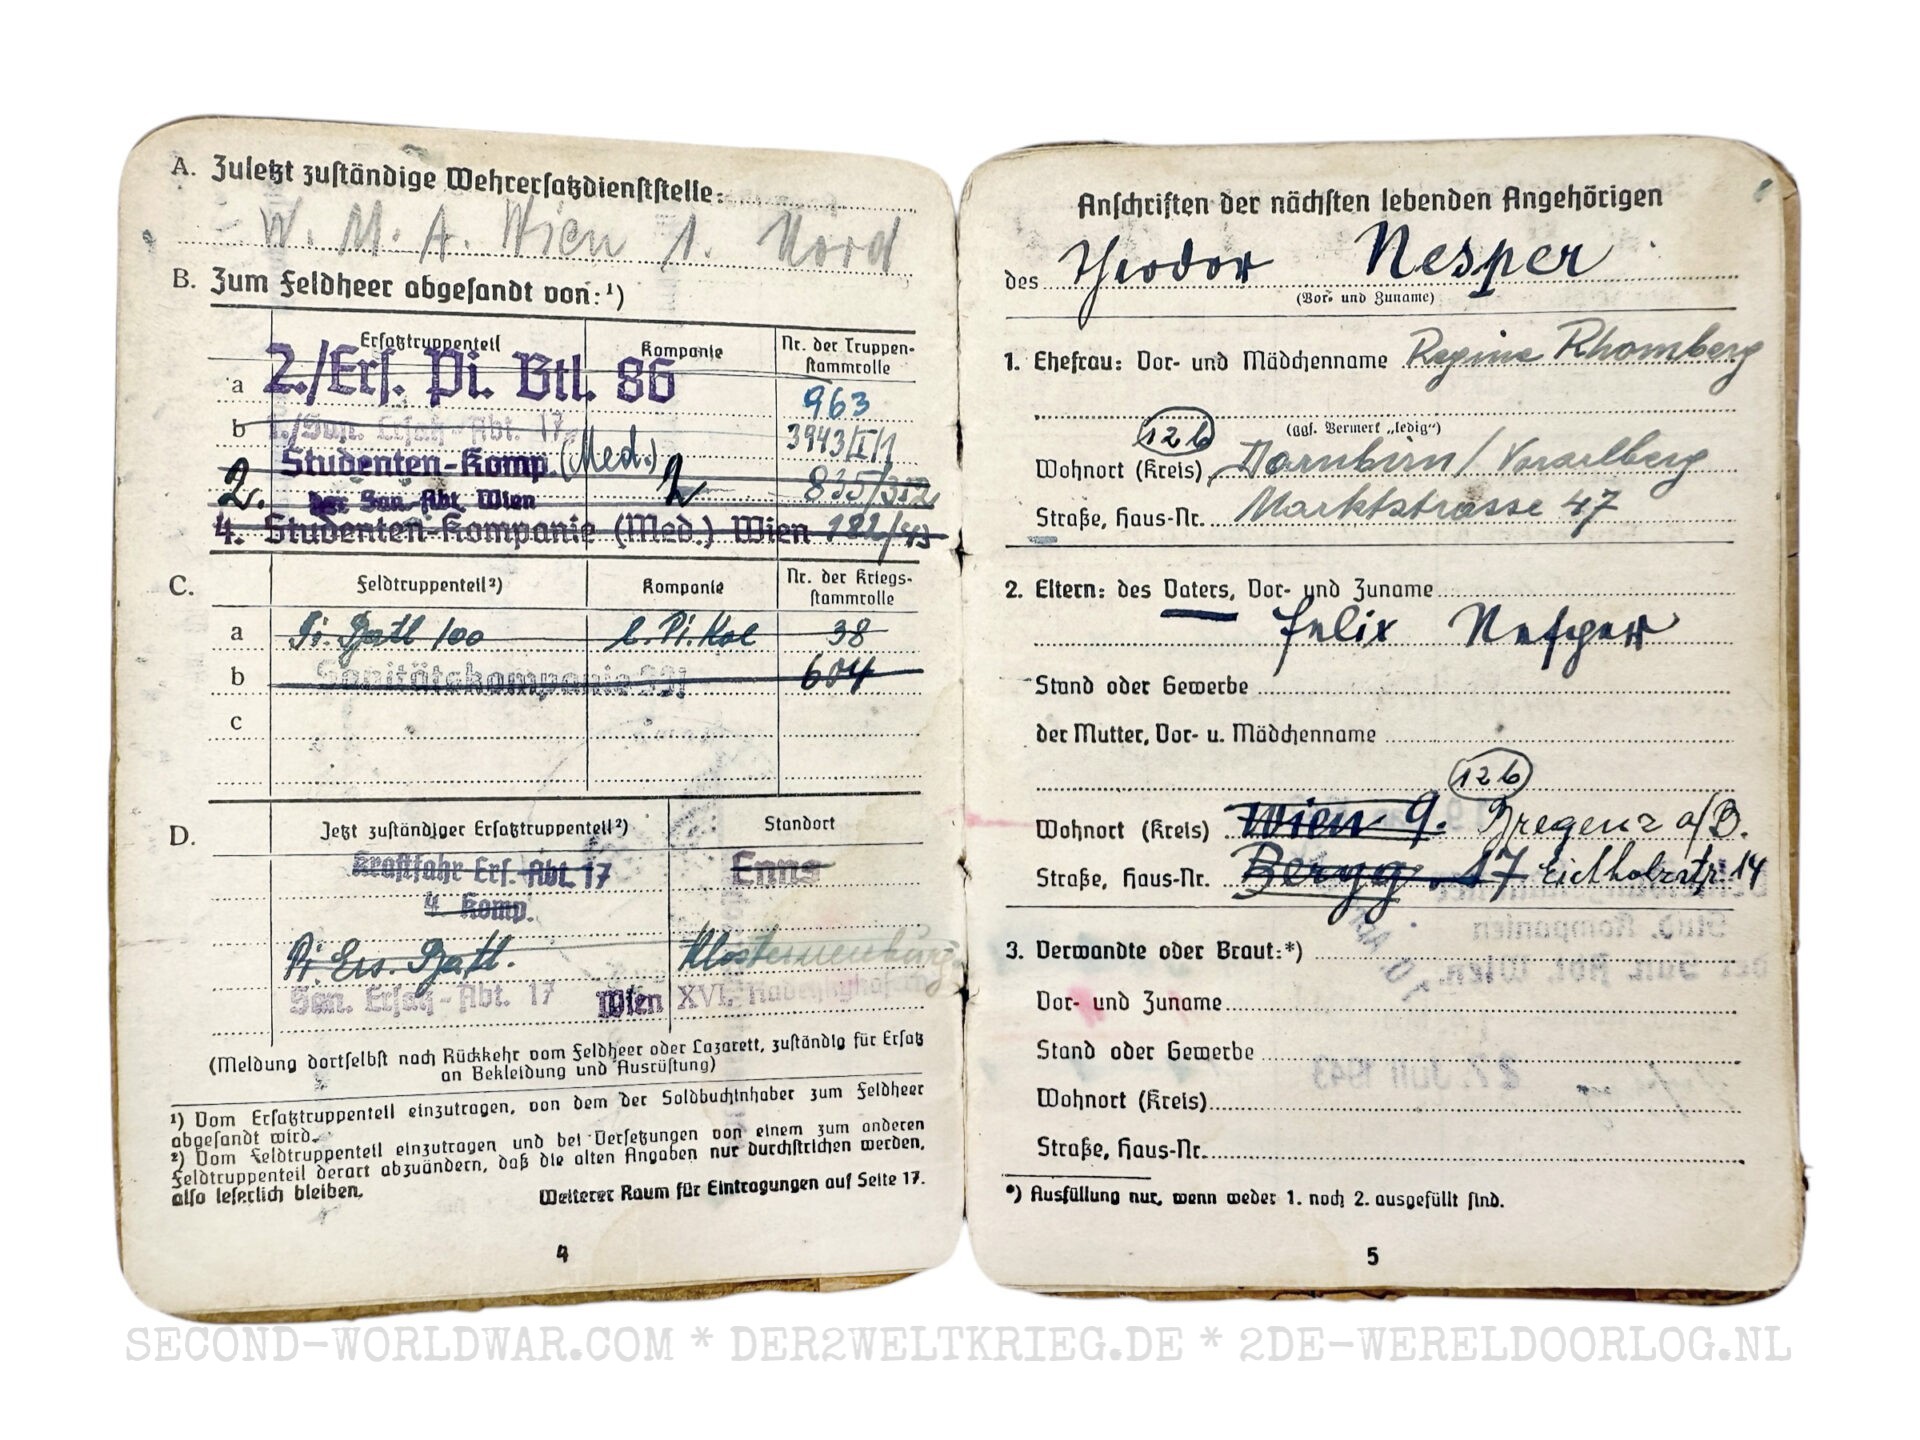 A. Zuletzt zuständige Wehrersatzdienststelle:
W. M. A. Wien 1. Nord
B. Zum Feldheer abgesandt von: ¹)
Ersatztruppenteil Kompanie Nr. der Truppen-
stammrolle
a 2./Ers. Pi. Btl. 86 963
b 1./San. Ersatz-Abt. 17 3943/I/1
Studenten-Komp. (Med.) 2 835/312
2. der San.-Abt. Wien
4. Studenten-Kompanie (Med.) Wien 182/43
C. Feldtruppenteil ²) Kompanie Nr. der Kriegs-
stammrolle
a Pi. Batl 100 l. Pi. Kol 38
b Sanitätskompanie 604
c
D. Jetzt zuständiger Ersatztruppenteil ²) Standort
Kraftfahr-Ers. Abt. 17 Enns
4. Komp.
Pi Ers. Batl. Klosterneuburg
San. Ersatz-Abt. 17 Wien XVI, Radetzkykaserne
(Meldung dortselbst nach Rückkehr vom Feldheer oder Lazarett, zuständig für Ersatz
an Bekleidung und Ausrüstung)
¹) Vom Ersatztruppenteil einzutragen, von dem der Soldbuchinhaber zum Feldheer
abgesandt wird.
²) Vom Feldtruppenteil einzutragen und bei Versetzungen von einem zum anderen
Feldtruppenteil derart abzuändern, daß die alten Angaben nur durchstrichen werden,
also leserlich bleiben.
Weiterer Raum für Eintragungen auf Seite 17.
4
Anschriften der nächsten lebenden Angehörigen
des Theodor Nesper
(Vor- und Zuname)
1. Ehefrau: Vor- und Mädchenname Regine Rhomberg
(ggf. Vermerk „ledig“)
12 b
Wohnort (Kreis) Dornbirn / Vorarlberg
Straße, Haus-Nr. Marktstrasse 47
2. Eltern: des Vaters, Vor- und Zuname
Felix Nesper
Stand oder Gewerbe
der Mutter, Vor- u. Mädchenname
12 b
Wohnort (Kreis) Wien 9. Bregenz a/B.
Straße, Haus-Nr. Bergg. 17 Eichholzstr. 14
3. Verwandte oder Braut:*)
Vor- und Zuname
Stand oder Gewerbe
Wohnort (Kreis)
Straße, Haus-Nr.
*) Ausfüllung nur, wenn weder 1. noch 2. ausgefüllt sind.
5
SECOND-WORLDWAR.COM * DER2WELTKRIEG.DE * 2DE-WERELDOORLOG.NL